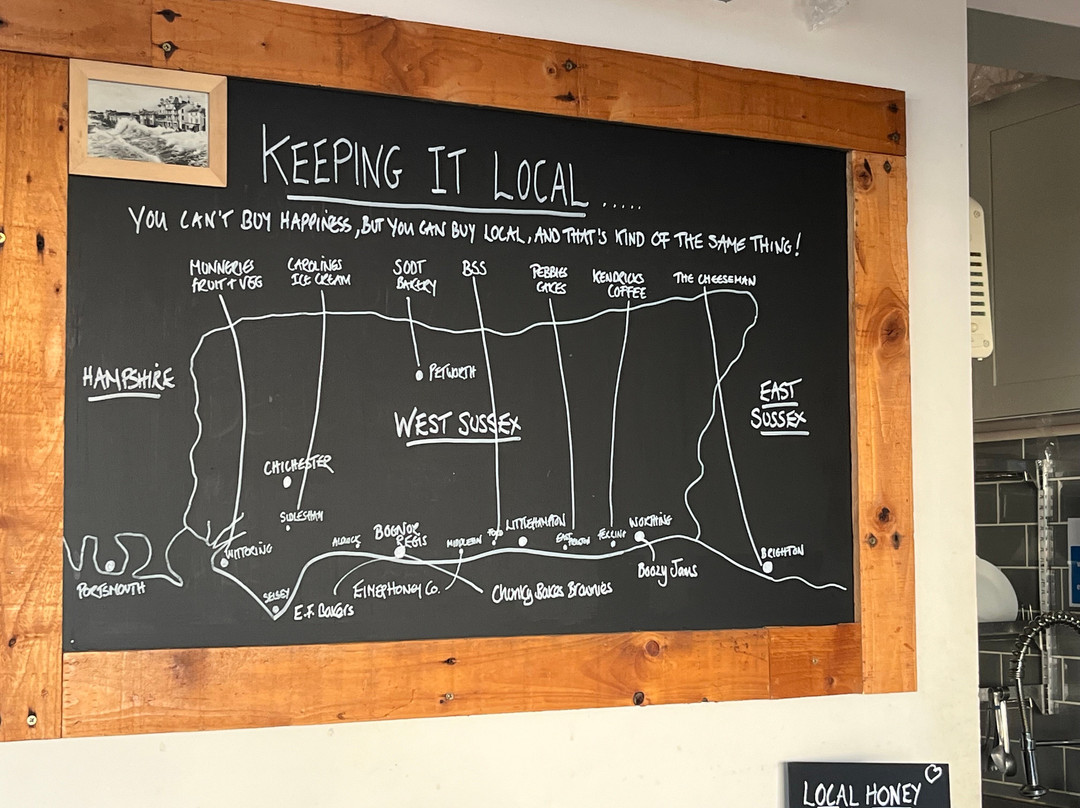 KEEPING IT LOCAL .....
YOU CAN'T BUY HAPPINESS, BUT YOU CAN BUY LOCAL, AND THAT'S KIND OF THE SAME THING!
MUNNERIES
FRUIT + VEG
CAROLINES
ICE CREAM
SODT
BAKERY
BSS
PEBBLES
CAKES
KENDRICKS
COFFEE
THE CHEESEMAN
HAMPSHIRE
PETWORTH
WEST SUSSEX
EAST
SUSSEX
CHICHESTER
SIDLESHAM
WITTERING
ALDWICK
BOGNOR
REGIS
MIDDLETON
FORD
LITTLEHAMPTON
EAST
PRESTON
FERRING
WORTHING
BRIGHTON
PORTSMOUTH
SELSEY
E.F. Bakers
EIMERHONEY CO.
Chunky Bakes Brownies
Boozy Jams
LOCAL HONEY